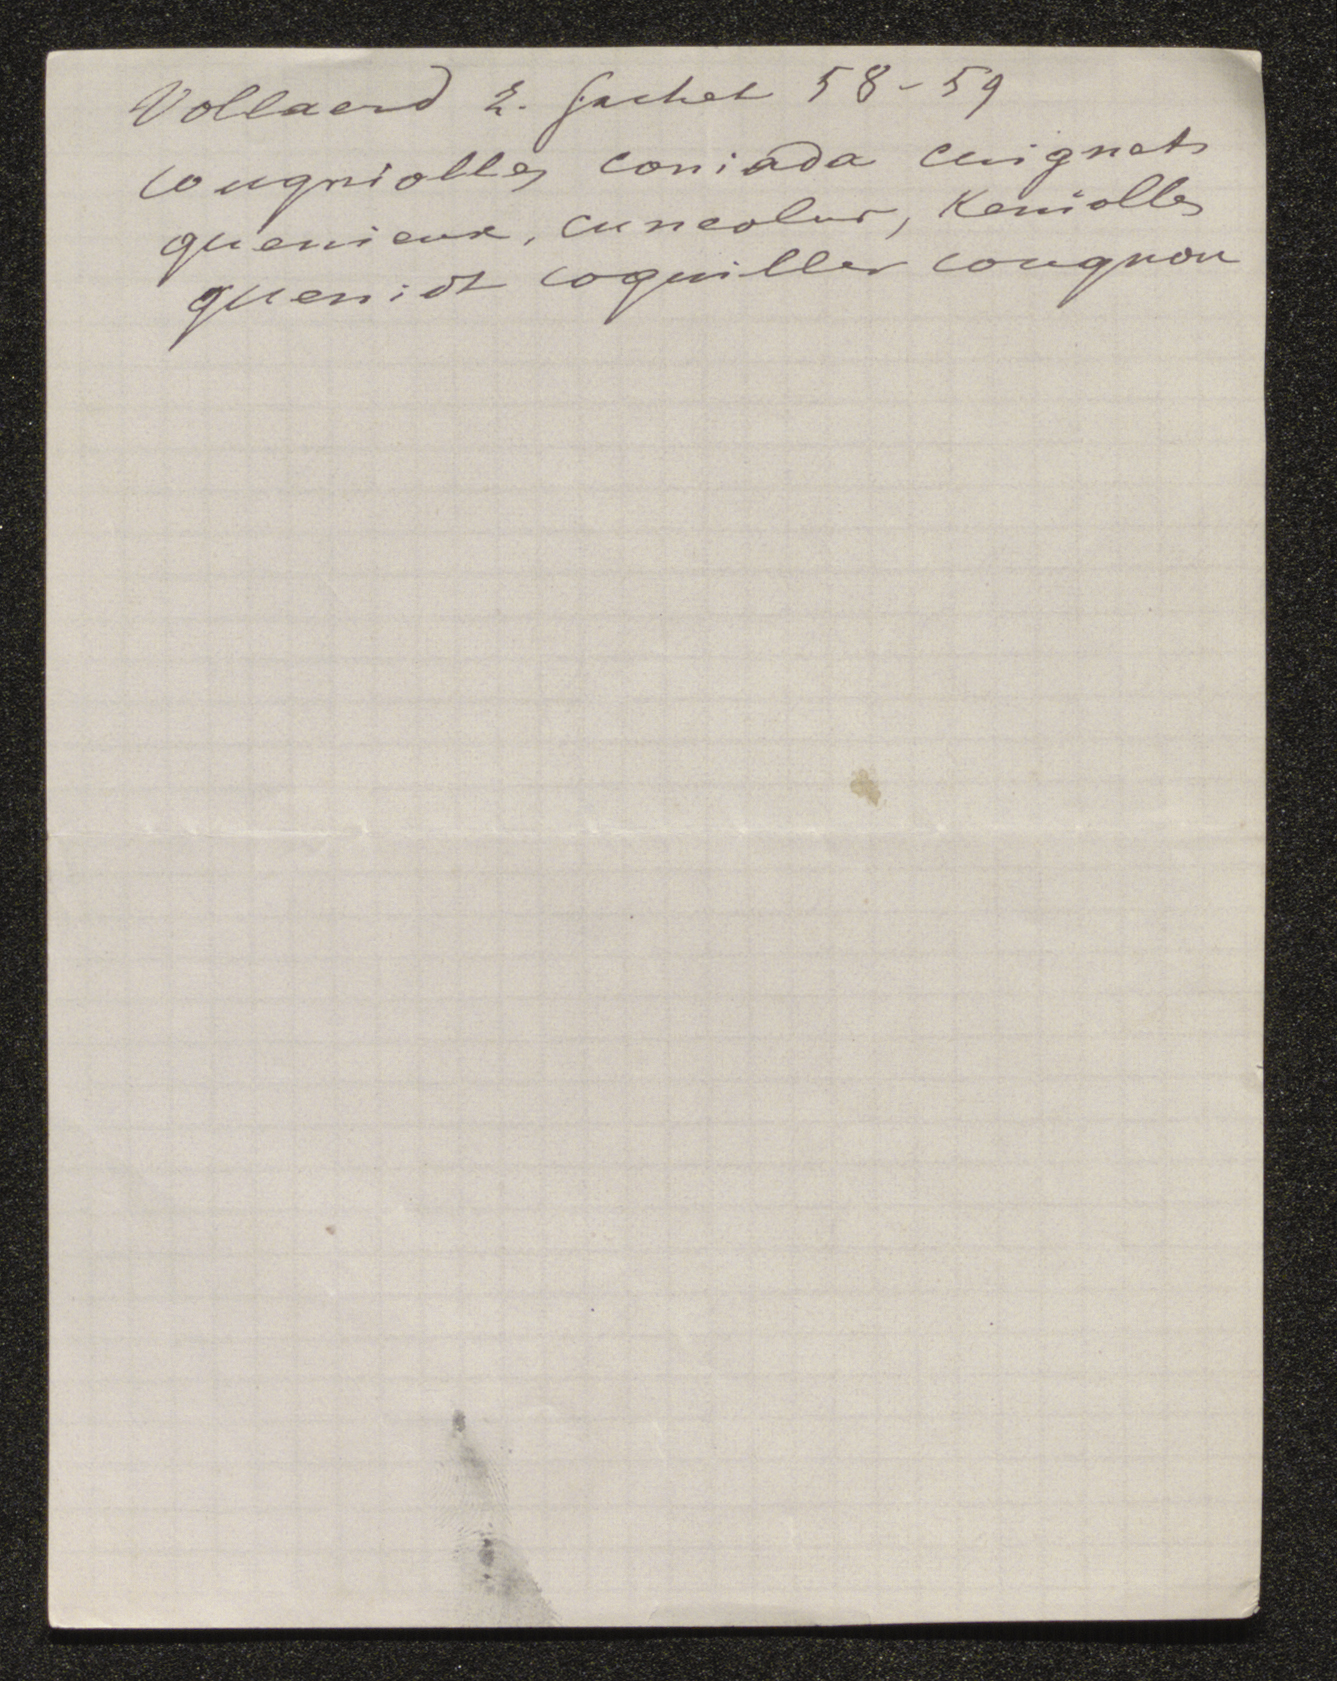 Vollaerd 2. Gachet 58-59
cougniolles coniada cuignets
quenieux, cuneolus, Keniolles
queniot coquilles cougnou